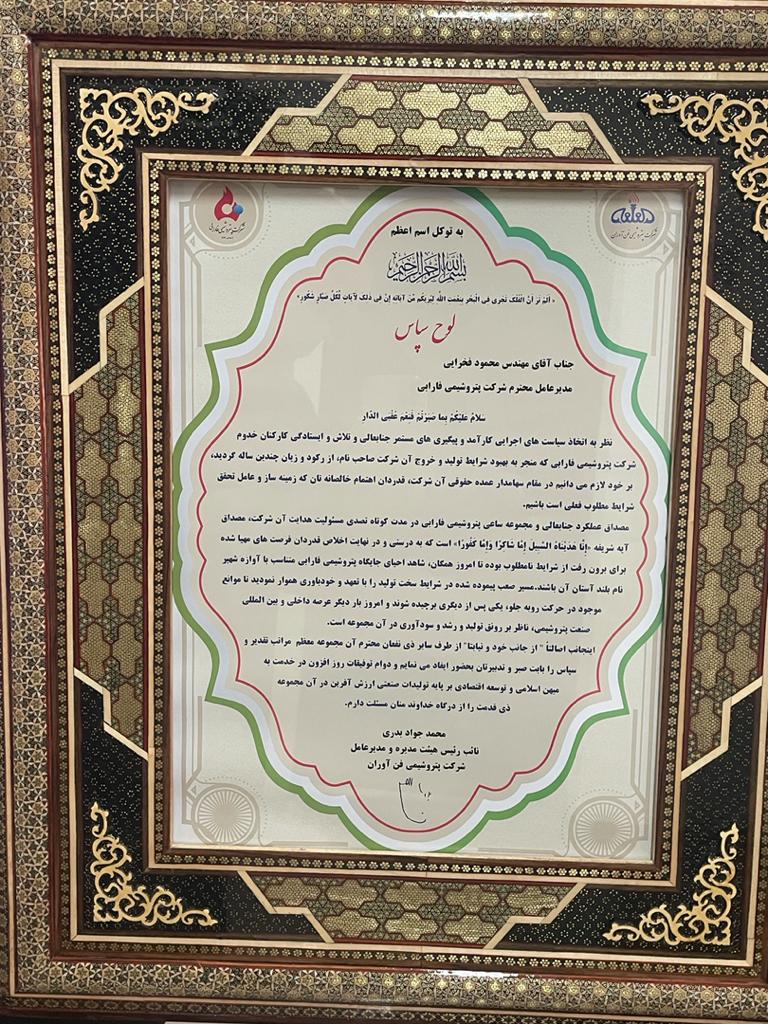 شرکت پتروشیمی فارابی
شرکت پتروشیمی فن آوران
به توکل اسم اعظم
بسم الله الرحمن الرحیم
« أَلَمْ تَرَ أَنَّ الْفُلْكَ تَجْرِي فِي الْبَحْرِ بِنِعْمَتِ اللَّهِ لِيُرِيَكُم مِّنْ آيَاتِهِ إِنَّ فِي ذَلِكَ لَآيَاتٍ لِّكُلِّ صَبَّارٍ شَكُورٍ»
لوح سپاس
جناب آقای مهندس محمود فخرایی
مدیرعامل محترم شرکت پتروشیمی فارابی
سَلَامٌ عَلَيْكُمْ بِمَا صَبَرْتُمْ فَنِعْمَ عُقْبَى الدَّارِ
نظر به اتخاذ سیاست های اجرایی کارآمد و پیگیری های مستمر جنابعالی و تلاش و ایستادگی کارکنان خدوم
شرکت پتروشیمی فارابی که منجر به بهبود شرایط تولید و خروج آن شرکت صاحب نام، از رکود و زیان چندین ساله گردید،
بر خود لازم می دانیم در مقام سهامدار عمده حقوقی آن شرکت، قدردان اهتمام خالصانه تان که زمینه ساز و عامل تحقق
شرایط مطلوب فعلی است باشیم.
مصداق عملکرد جنابعالی و مجموعه ساعی پتروشیمی فارابی در مدت کوتاه تصدی مسئولیت هدایت آن شرکت، مصداق
آیه شریفه «إِنَّا هَدَيْنَاهُ السَّبِيلَ إِمَّا شَاكِرًا وَإِمَّا كَفُورًا» است که به درستی و در نهایت اخلاص قدردان فرصت های مهیا شده
برای برون رفت از شرایط نامطلوب بوده تا امروز همگان، شاهد احیای جایگاه پتروشیمی فارابی متناسب با آوازه شهیر
نام بلند آستان آن باشند.مسیر صعب پیموده شده در شرایط سخت تولید را با تعهد و خودباوری هموار نمودید تا موانع
موجود در حرکت روبه جلو، یکی پس از دیگری برچیده شوند و امروز بار دیگر عرصه داخلی و بین المللی
صنعت پتروشیمی، ناظر بر رونق تولید و رشد و سودآوری در آن مجموعه است.
اینجانب اصالتاً " از جانب خود و نیابتا" از طرف سایر ذی نفعان محترم آن مجموعه معظم مراتب تقدیر و
سپاس را بابت صبر و تدبیرتان بحضور ایفاد می نمایم و دوام توفیقات روز افزون در خدمت به
میهن اسلامی و توسعه اقتصادی بر پایه تولیدات صنعتی ارزش آفرین در آن مجموعه
ذی قدمت را از درگاه خداوند منان مسئلت دارم.
محمد جواد بدری
نائب رئیس هیئت مدیره و مدیرعامل
شرکت پتروشیمی فن آوران